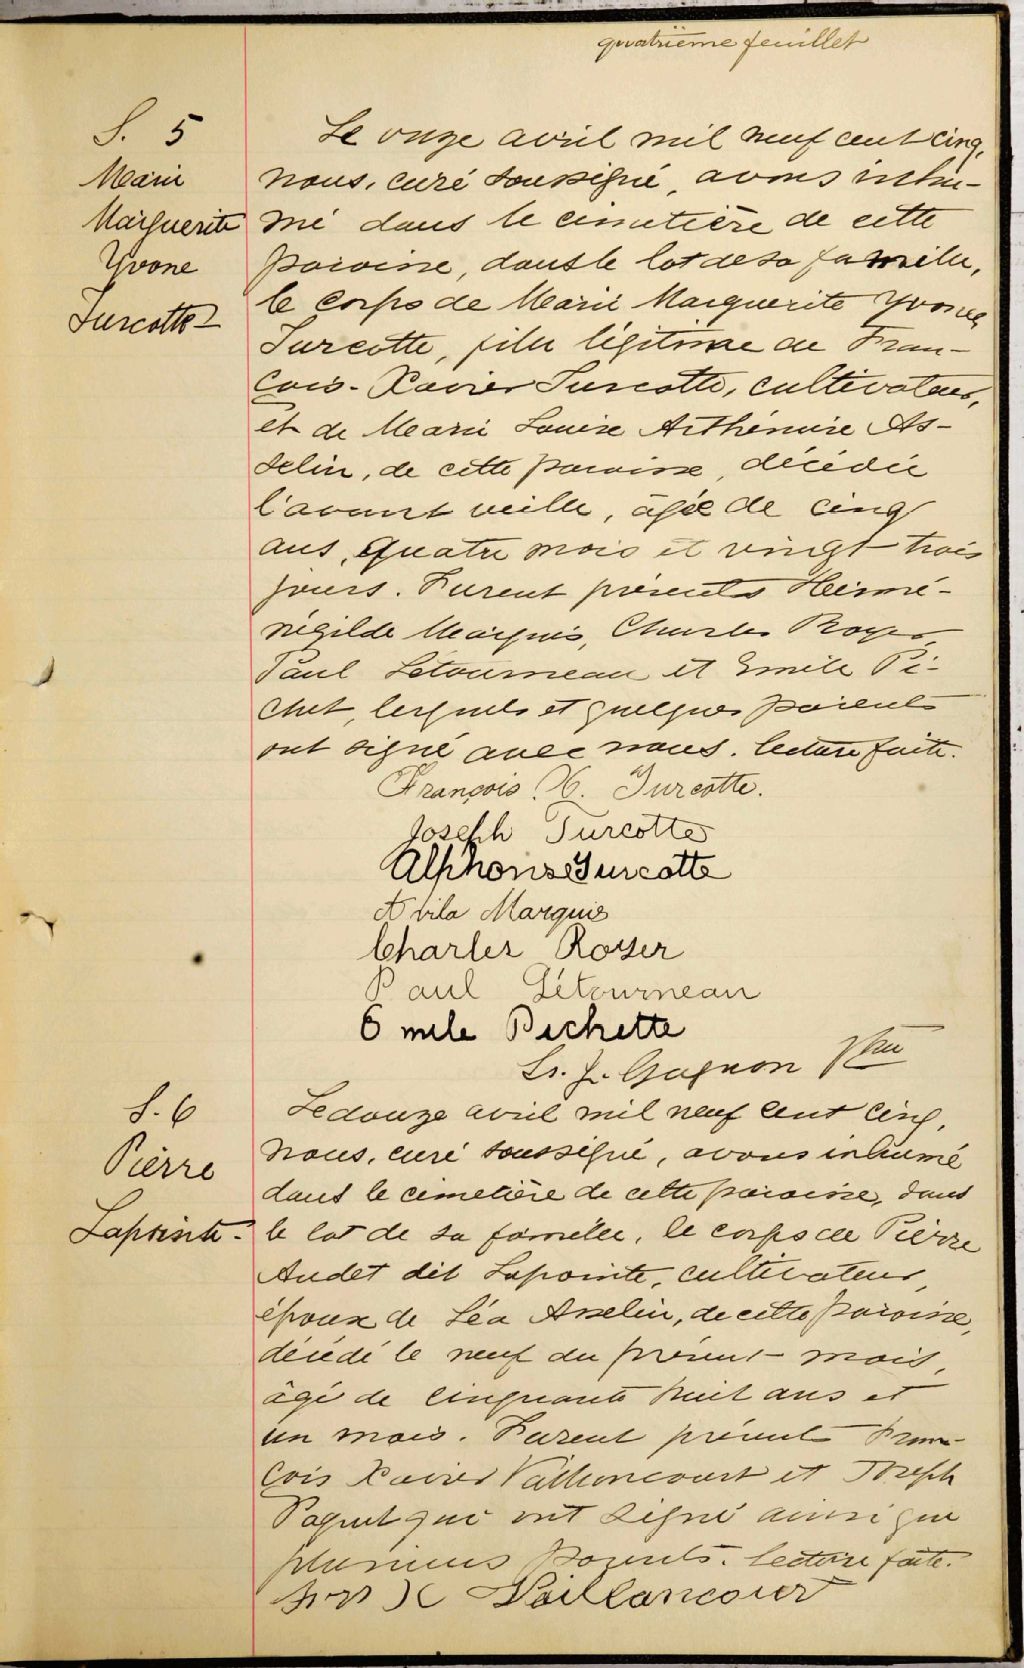 quatrième feuillet
S. 5
Marie
Marguerite
Yvone
Turcotte
Le onze avril mil neuf cent cinq,
nous, curé soussigné, avons inhu-
mé dans le cimetière de cette
paroisse, dans le lot de sa famille,
le corps de Marie Marguerite Yvone
Turcotte, fille légitime de Fran-
çois-Xavier Turcotte, cultivateur,
et de Marie Louise Arthémise As-
selin, de cette paroisse, décédée
l'avant veille, âgée de cinq
ans, quatre mois et vingt-trois
jours. Furent présents Hermé-
négilde Marquis, Charles Royer,
Paul Letourneau et Emile Pi-
chet, lesquels et quelques parents
ont signé avec nous. lecture faite.
François X. Turcotte.
Joseph Turcotte
Alphonse Turcotte
Avila Marquis
Charles Royer
Paul Létourneau
Emile Pichette
Ls. J. Gagnon Ptre
S. 6
Pierre
Lapointe-
Le douze avril mil neuf cent cinq,
nous, curé soussigné, avons inhumé
dans le cimetière de cette paroisse, dans
le lot de sa famille, le corps de Pierre
Audet dit Lapointe, cultivateur,
époux de Léa Asselin, de cette paroisse,
décédé le neuf du présent mois,
âgé de cinquante huit ans et
un mois. Furent présents Fran-
çois Xavier Vaillancourt et Joseph
Paquet qui ont signé ainsi que
plusieurs parents. lecture faite.
X Vaillancourt